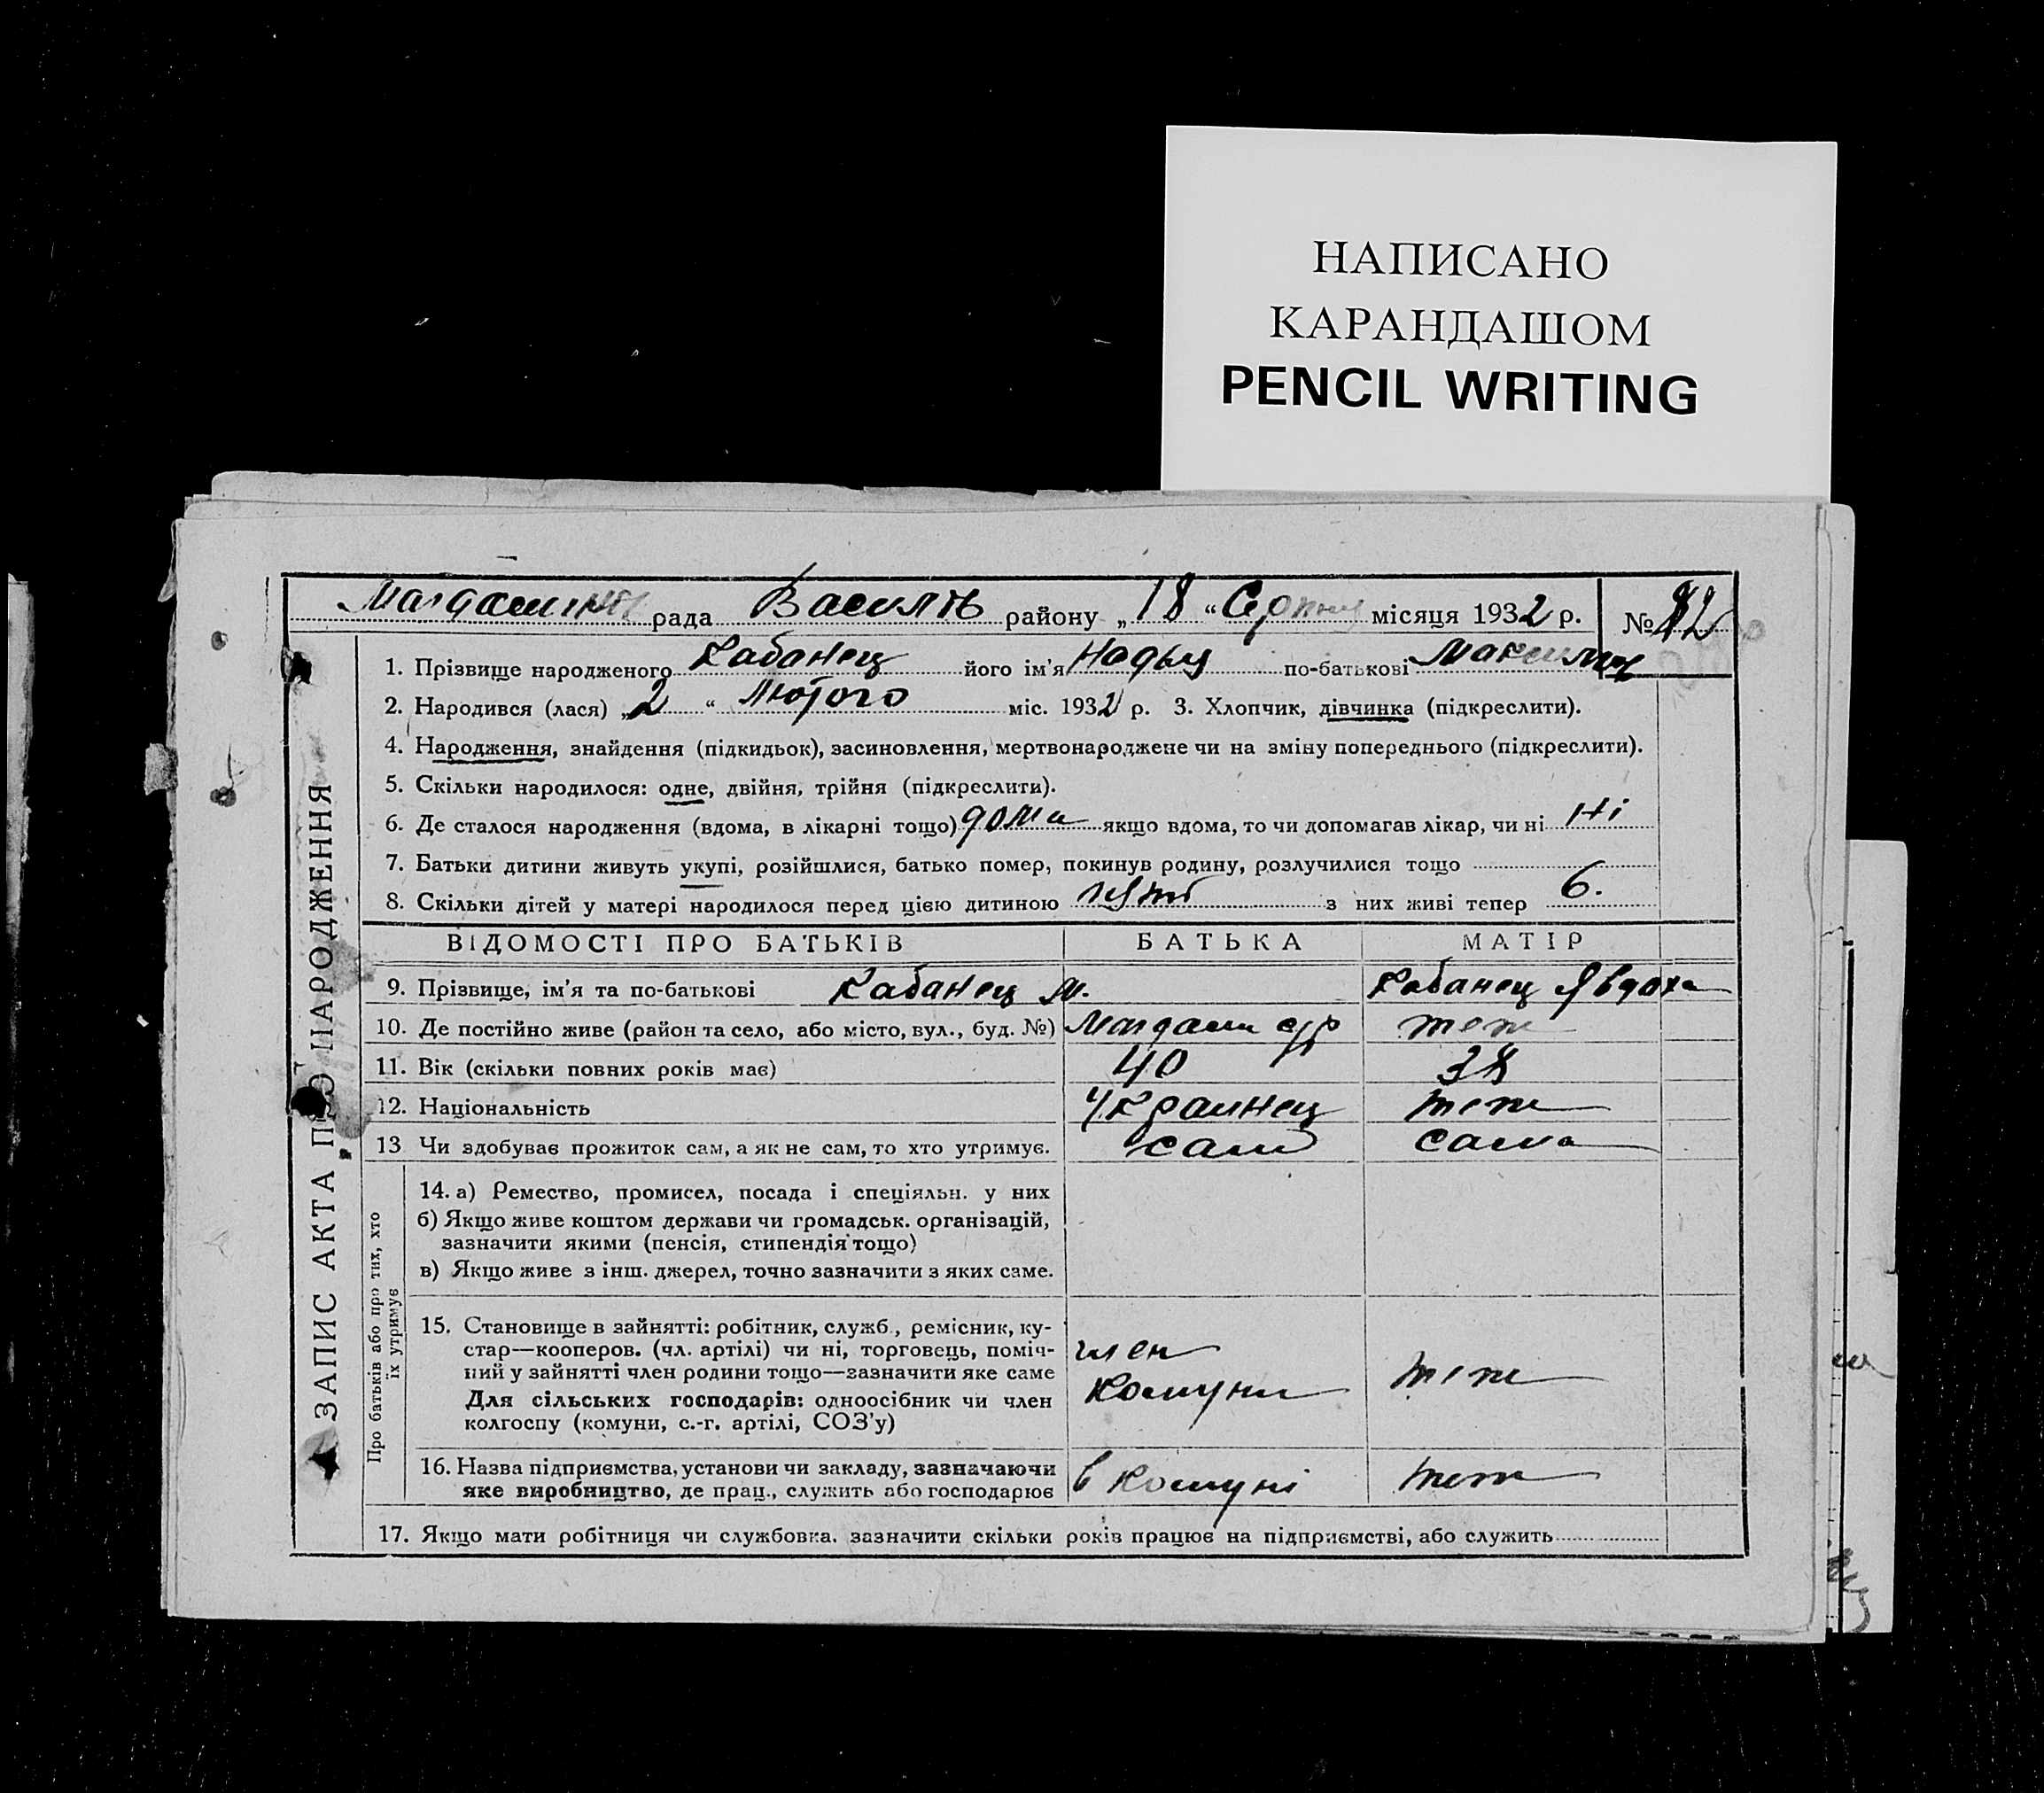 НАПИСАНО
КАРАНДАШОМ
PENCIL WRITING
рада Василь району „ 18 “ Серпня місяця 1932 р. №
ЗАПИС АКТА ПРО НАРОДЖЕННЯ
1. Прізвище народженого Кабанец його ім'я по-батькові
2. Народився (лася) „ 2 “ Лютого міс. 1932 р. 3. Хлопчик, дівчинка (підкреслити).
4. Народження, знайдення (підкидьок), засиновлення, мертвонароджене чи на зміну попереднього (підкреслити).
5. Скільки народилося: одне, двійня, трійня (підкреслити).
6. Де сталося народження (вдома, в лікарні тощо) дома якщо вдома, то чи допомагав лікар, чи ні Ні
7. Батьки дитини живуть укупі, розійшлися, батько помер, покинув родину, розлучилися тощо
8. Скільки дітей у матері народилося перед цією дитиною з них живі тепер 6.
ВІДОМОСТІ ПРО БАТЬКІВ БАТЬКА МАТІР
9. Прізвище, ім'я та по-батькові Кабанец М. Кабанец Явдоха
10. Де постійно живе (район та село, або місто, вул., буд. №) теж
11. Вік (скільки повних років має) 40 38
12. Національність Українец теж
13 Чи здобуває прожиток сам, а як не сам, то хто утримує. сам сама
Про батьків або про тих, хто
їх утримує
14. а) Ремество, промисел, посада і спеціяльн. у них
б) Якщо живе коштом держави чи громадськ. організацій,
зазначити якими (пенсія, стипендія тощо)
в) Якщо живе з інш. джерел, точно зазначити з яких саме.
15. Становище в зайнятті: робітник, служб., ремісник, ку-
стар—кооперов. (чл. артілі) чи ні, торговець, поміч-
ний у зайнятті член родини тощо—зазначити яке саме
Для сільських господарів: одноосібник чи член
колгоспу (комуни, с.-г. артілі, СОЗ'у)
член
комуни теж
16. Назва підприємства, установи чи закладу, зазначаючи
яке виробництво, де прац., служить або господарює
в комуні теж
17. Якщо мати робітниця чи службовка, зазначити скільки років працює на підприємстві, або служить